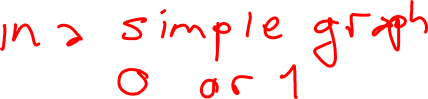 in a simple graph
0 or 1